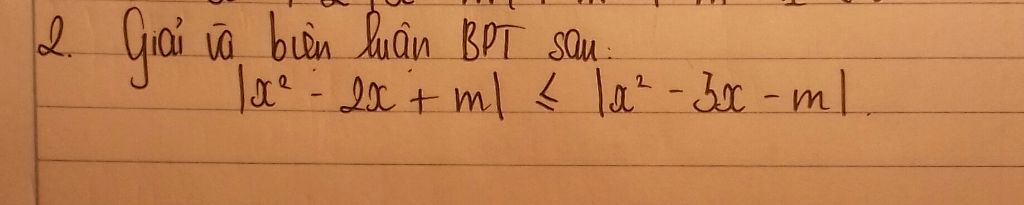 2. Giải và biện luận BPT sau:
|x² - 2x + m| ≤ |x² - 3x - m|.